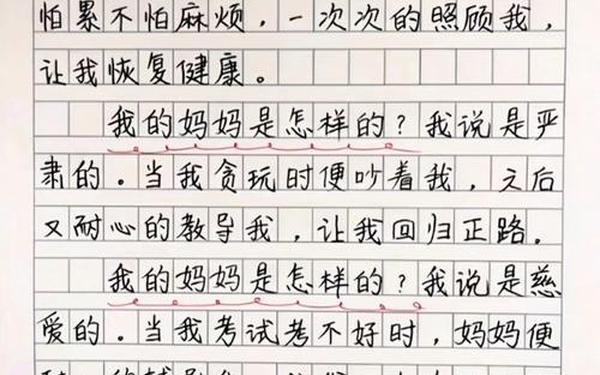 怕累不怕麻烦，一次次的照顾我，
让我恢复健康。
我的妈妈是怎样的？我说是严
肃的．当我贪玩时便吵着我，之后
又耐心的教导我，让我回归正路．
我的妈妈是怎样的？我说是慈
爱的．当我考试考不好时，妈妈便